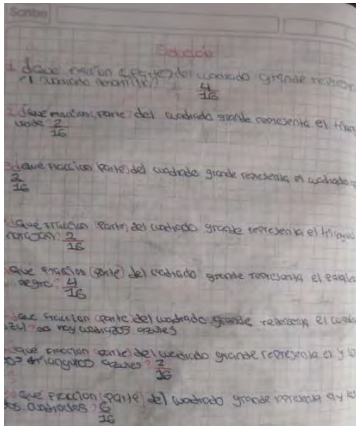 Scribe
Solución
1. ¿Que fracción (parte) del cuadrado grande represen
el cuadrado amarillo? 4/16
¿Que fraccion (parte) del cuadrado grande representa el trian
verde 2/16
3. ¿Que fraccion (parte) del cuadrado grande representa el cuadrado
2/16
¿Que fraccion (parte) del cuadrado grande representa el triangu
2/16
¿Que fraccion (parte) del cuadrado grande representa el
negro? 4/16
¿Que fraccion (parte del cuadrado grande representa el cuad
azul? no hay cuadrados azules
¿Que fraccion (parte) del cuadrado grande representa el y
triangulos azules? 2/16
¿Que fraccion (parte) del cuadrado grande representa a y
cuadrados? 6/16